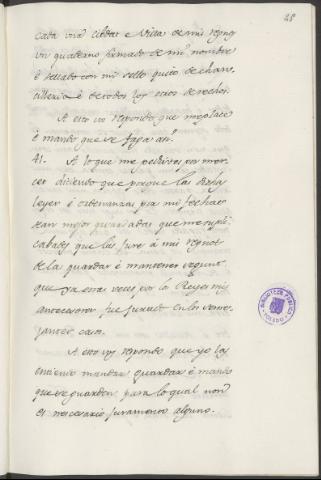 28
cada una cibdat e villa de mis regnos
un quaderno firmado de mi nombre
é sellado con mi sello quito de chan-
cilleria é de todos los otros derechos.
A esto vos respondo que me place
é mando que se faga asi.
41. A lo que me pedistes por mer-
ced diciendo que porque las dichas
leyes é ordenanzas por mi fechas
sean mejor guardadas que me supli-
cabades que las jure á mis regnos
de las guardar é mantener segunt
que ya otras veces por los Reyes mis
antecesores fue jurado en los seme-
jantes casos.
A esto vos respondo que yo las
entiendo mandar guardar é mando
que se guarden, para lo qual non
es necesario juramento alguno.
BIBLIOTECA PUBLICA
TOLEDO